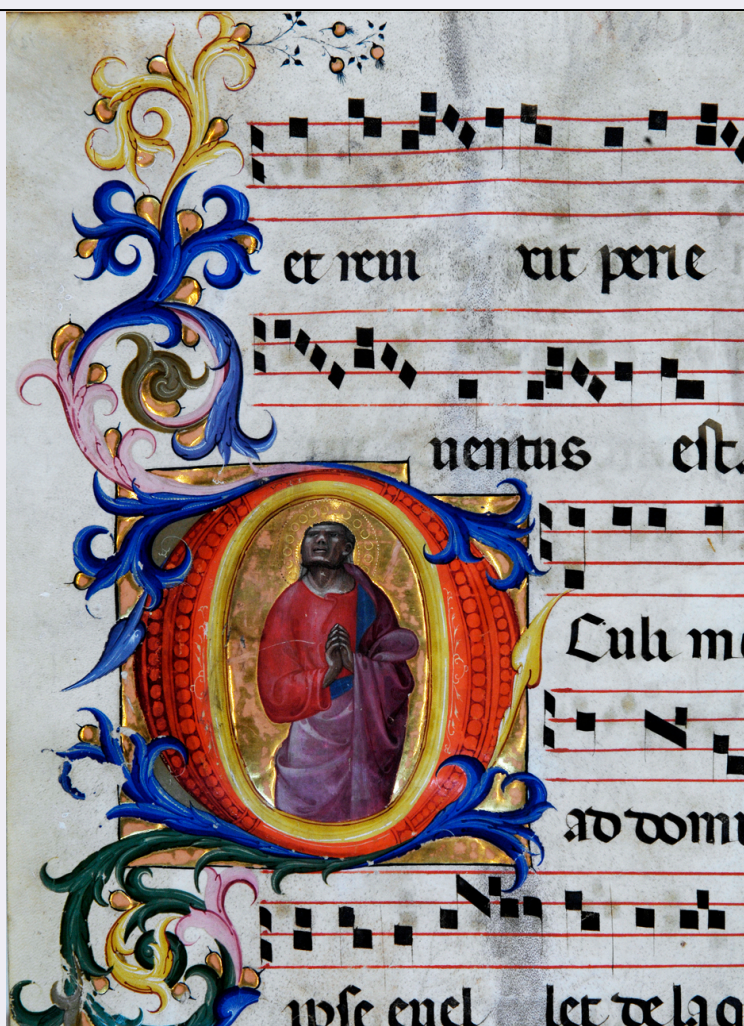 et reui xit perie
uentus est.
Oculi me
ad domi
ipse euel let de laq